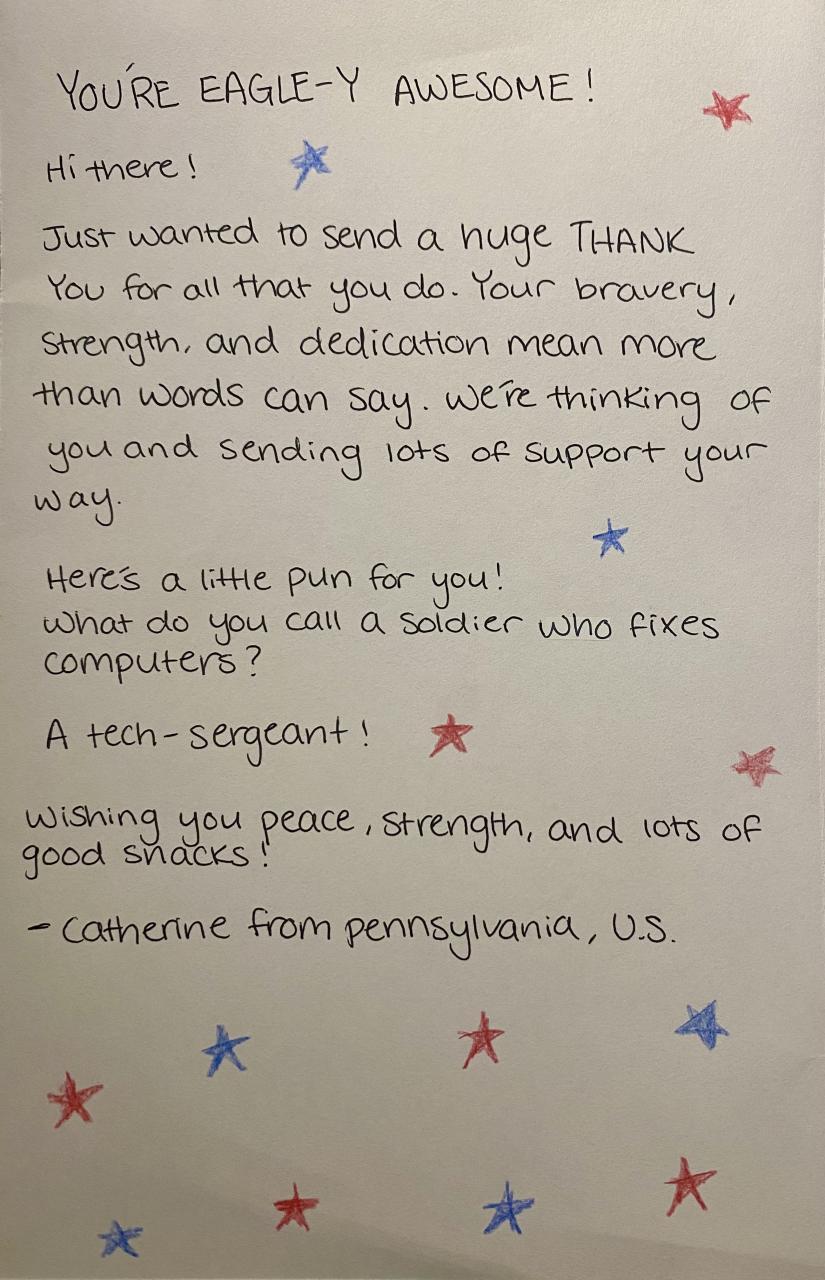 YOU'RE EAGLE-Y AWESOME!
Hi there!
Just wanted to send a huge THANK
YOU for all that you do. Your bravery,
strength, and dedication mean more
than words can say. We're thinking of
you and sending lots of support your
way.
Here's a little pun for you!
What do you call a soldier who fixes
computers?
A tech-sergeant!
Wishing you peace, strength, and lots of
good snacks!
- Catherine from pennsylvania, U.S.